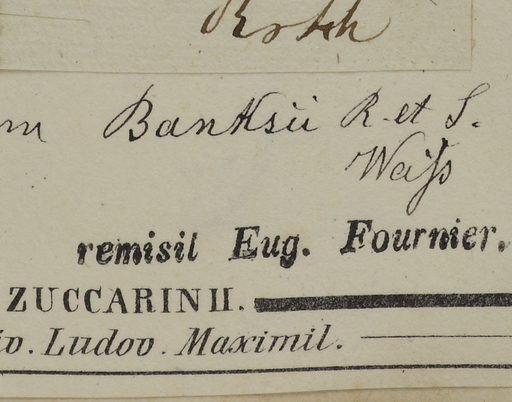 m Banksii R. et S.
Waiſs
remisil Eug. Fournier.
ZUCCARINII.
iv. Ludov. Maximil.